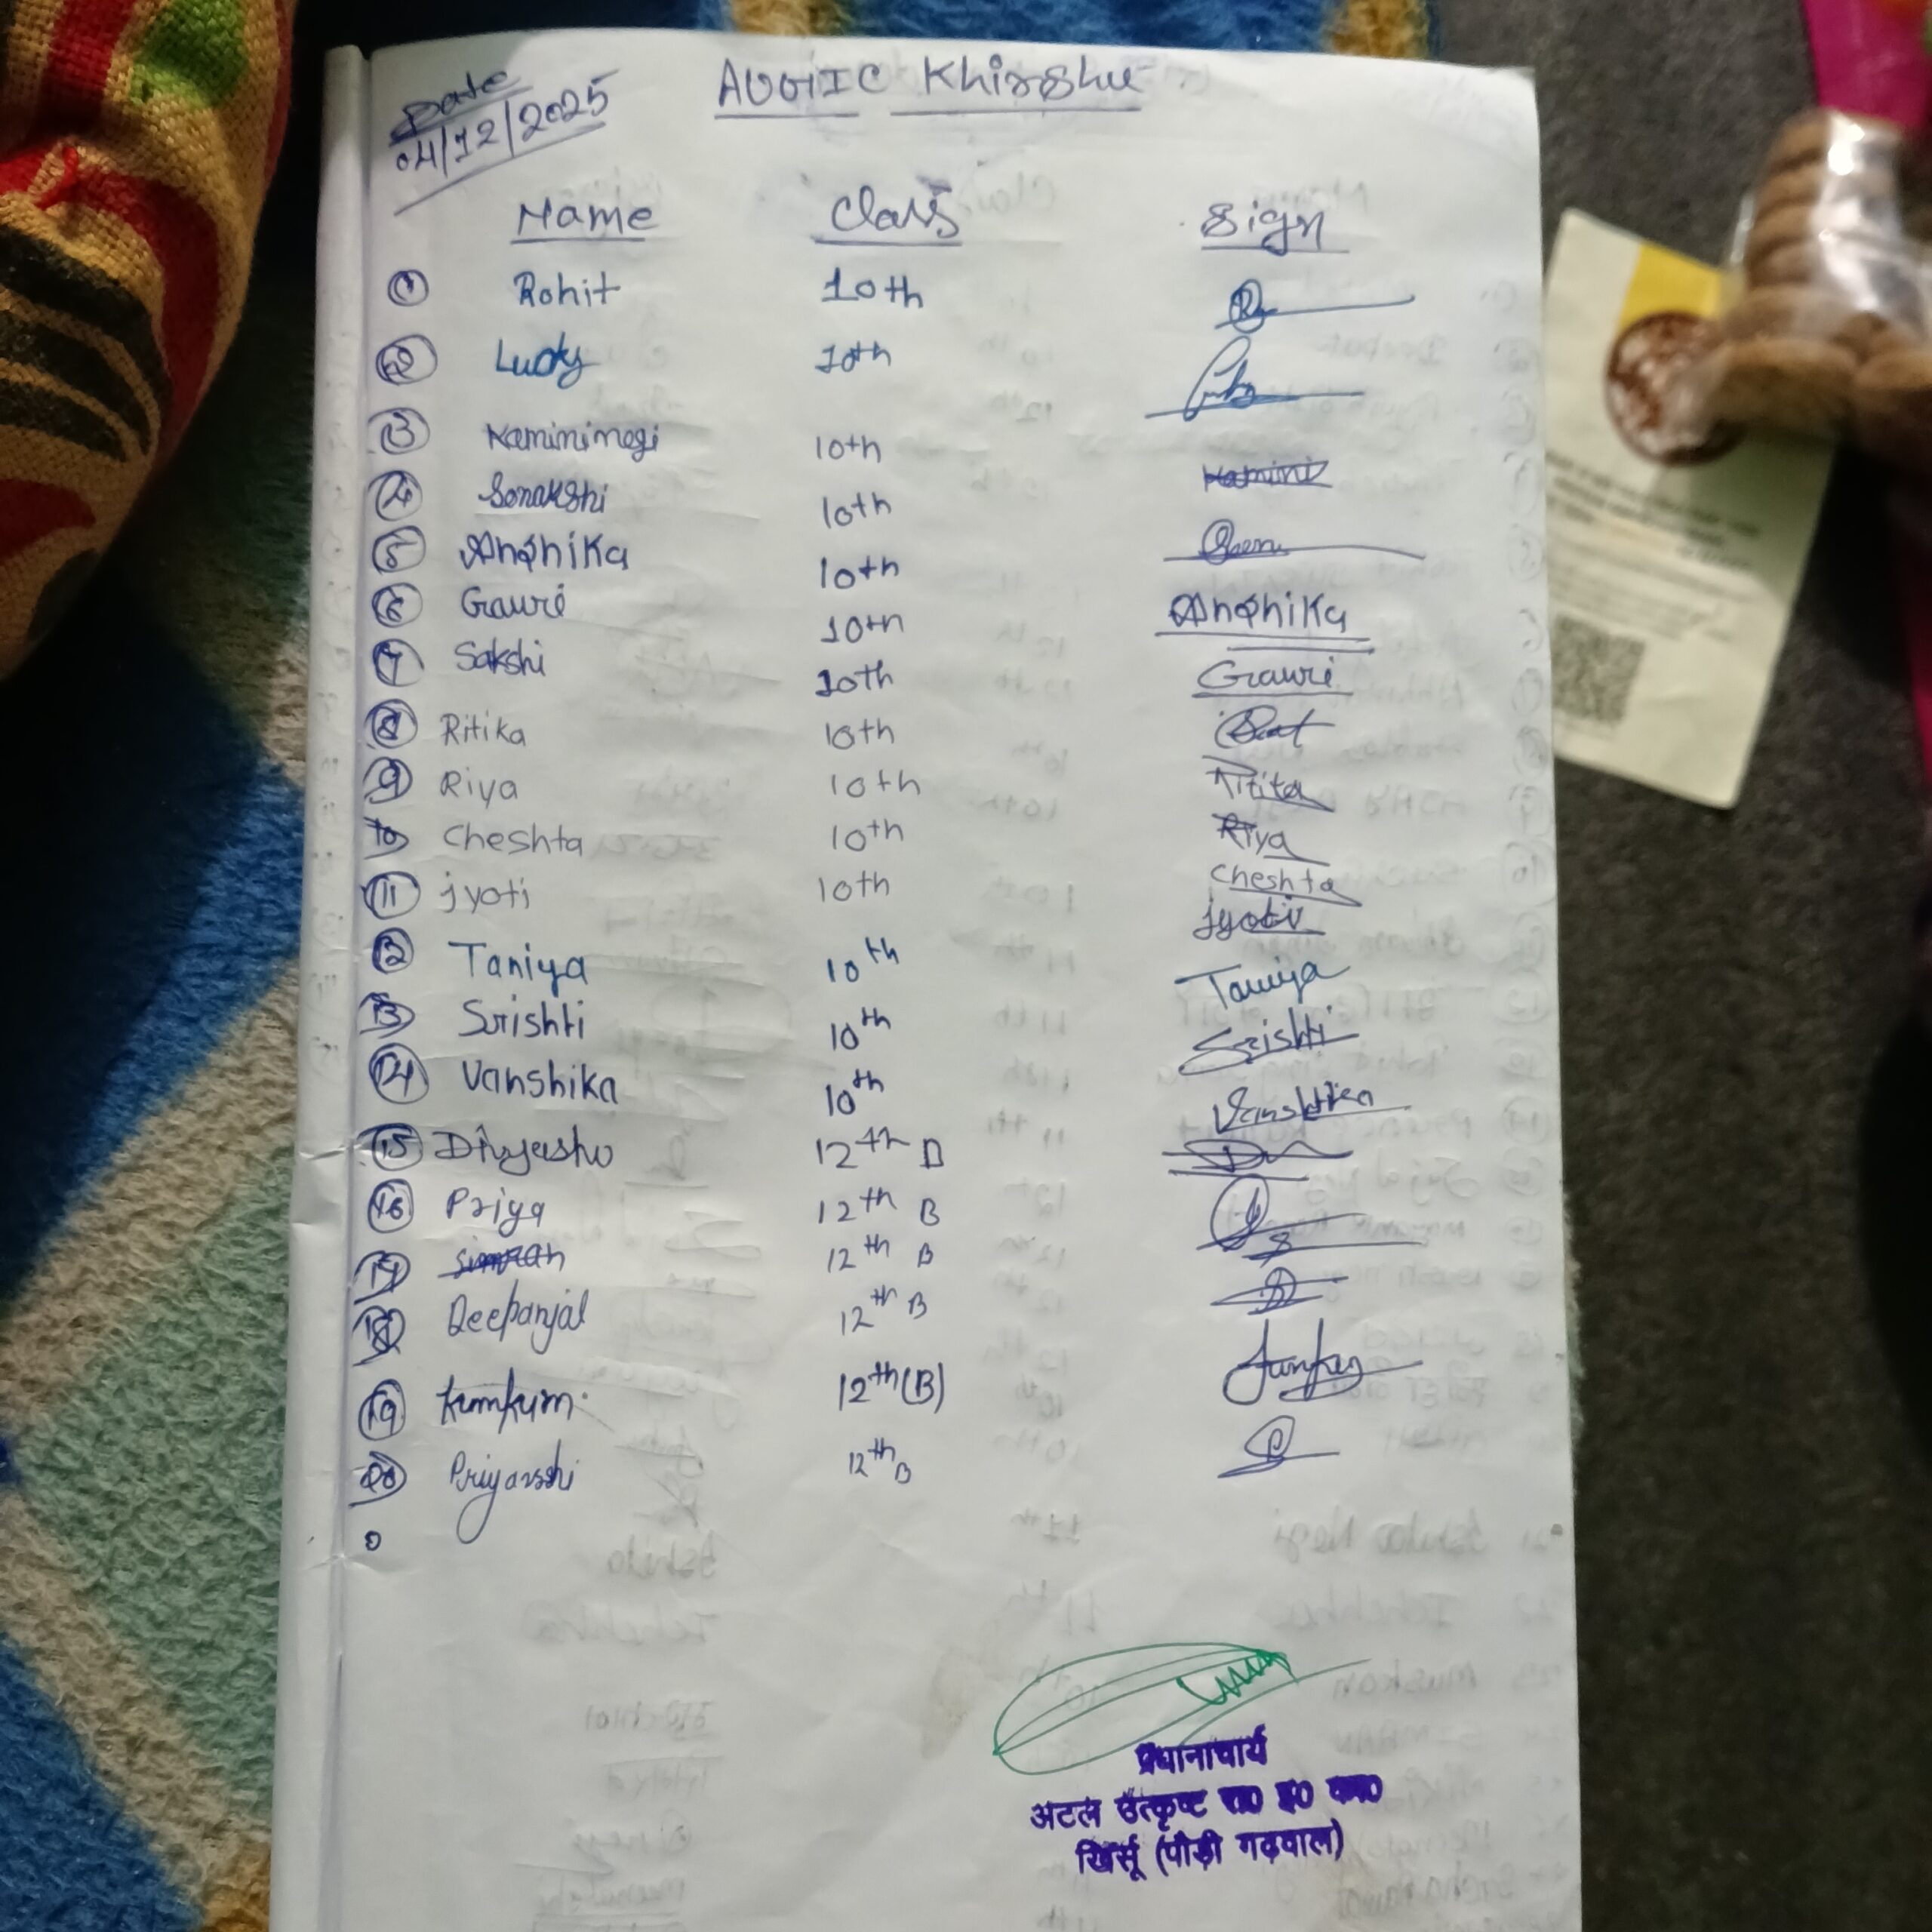 Date
04/12/2025
AUGIC Khirshu
Name Class Sign
1 Rohit 10th
2 10th
3 Kamini negi 10th Kamini
4 Sonakshi 10th
5 Anshika 10th Anshika
6 Gauri 10th Gauri
7 Sakshi 10th
8 Ritika 10th
9 Riya 10th Riya
10 Cheshta 10th Cheshta
11 jyoti 10th jyoti
12 Taniya 10th Taniya
13 Srishti 10th Srishti
14 Vanshika 10th Vanshika
15 12th B
16 Priya 12th B
17 Simran 12th B
18 Deepanjal 12th B
19 Kumkum 12th (B)
20 Priyanshi 12th B
प्रधानाचार्य
अटल उत्कृष्ट रा0 इ0 का0
खिर्सू (पौड़ी गढ़वाल)